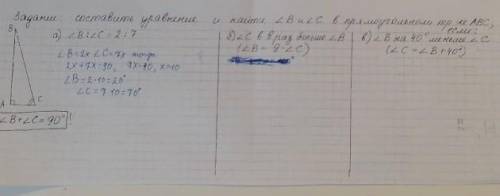 Задание: составить уравнение и найти ∠B и ∠C в прямоугольном тр-ке ABC,
если:
а) ∠B:∠C = 2:7
∠B=2x ∠C=7x тогда
2x+7x=90, 9x=90, x=10
∠B=2·10=20°
∠C=7·10=70°
B
A
C
∠B+∠C=90°!
б) ∠C в 8 раз больше ∠B
(∠B = 8·∠C)
в) ∠B на 40° меньше ∠C
(∠C = ∠B+40°)